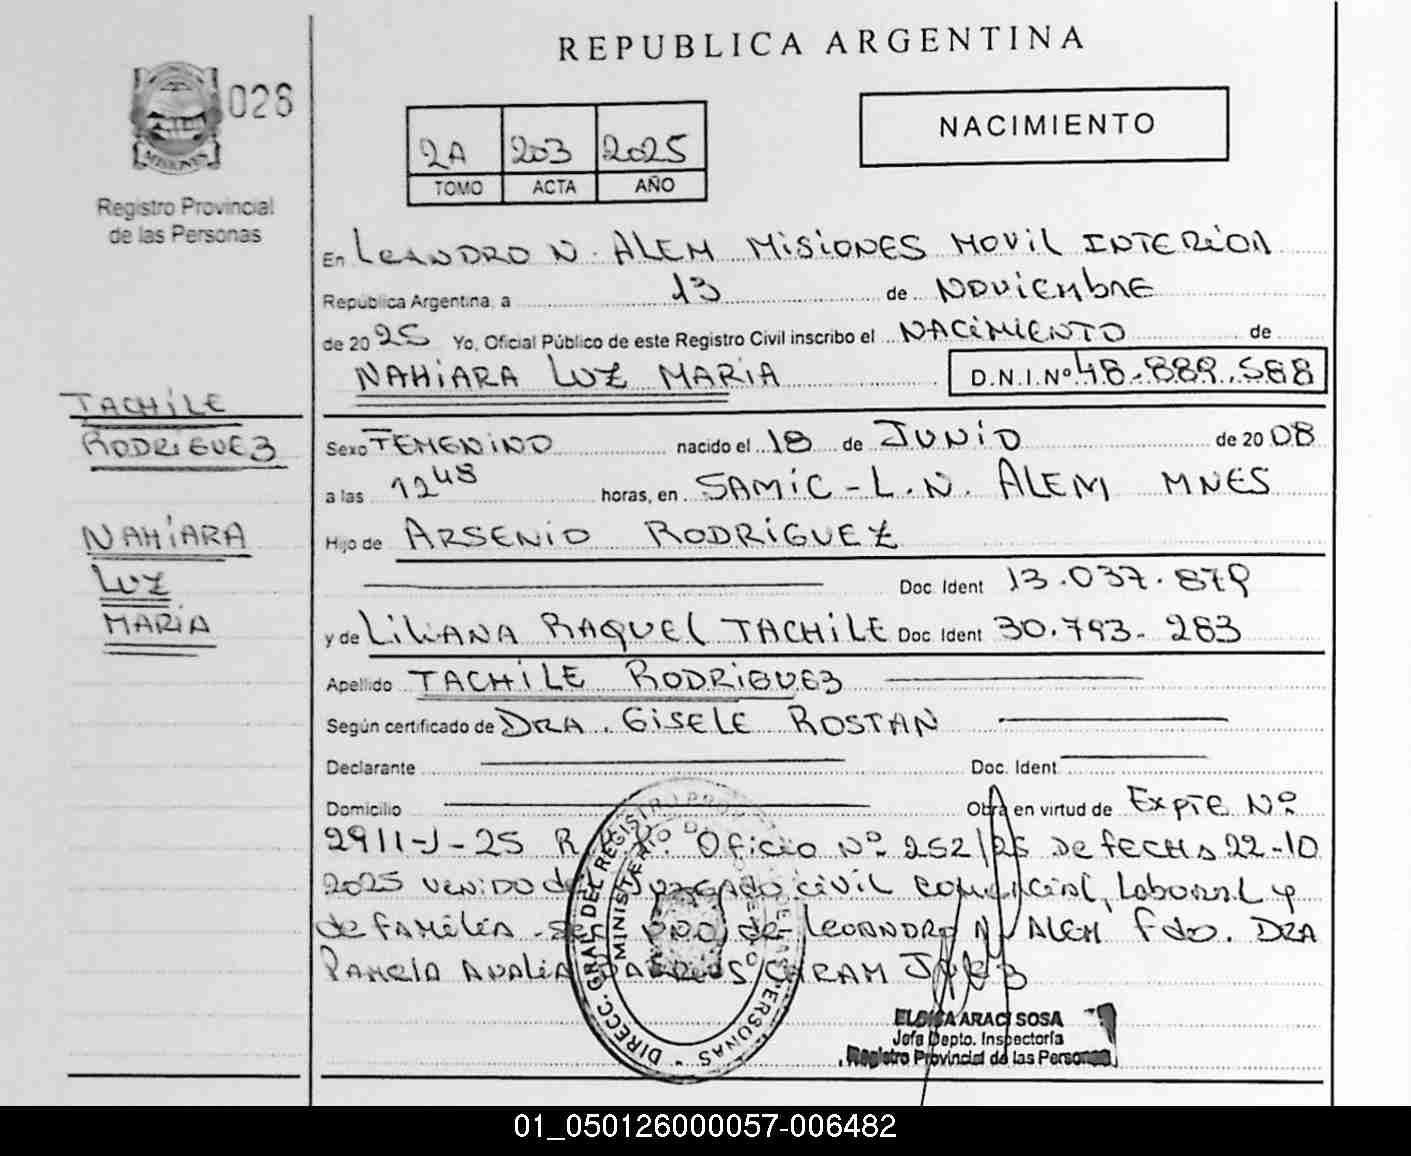 REPUBLICA ARGENTINA
026
MISIONES
Registro Provincial
de las Personas
2A 203 2025
TOMO ACTA AÑO
NACIMIENTO
En LEANDRO N. ALEM MISIONES MOVIL INTERIOR
Republica Argentina, a 13 de NOVIEMBRE
de 2025 Yo, Oficial Público de este Registro Civil inscribo el NACIMIENTO de
NAHIARA LUZ MARIA D.N.I.Nº 48.889.588
TACHILE
RODRIGUEZ
NAHIARA
LUZ
MARIA
Sexo FEMENINO nacido el 18 de JUNIO de 2008
a las 12 48 horas, en SAMIC - L. N. ALEM MNES
Hijo de ARSENIO RODRIGUEZ
Doc. Ident 13.037.879
y de LILIANA RAQUEL TACHILE Doc. Ident 30.793.283
Apellido TACHILE RODRIGUEZ
Según certificado de DRA. GISELE ROSTAN
Declarante Doc. Ident
Domicilio Obra en virtud de EXPTE Nº
2911-J-25 R Oficio Nº 252/25 DE FECHA 22-10
2025 VENIDO del JUZGADO CIVIL COMERCIAL, LABORAL Y
de FAMILIA de LEANDRO N ALEM Fdo. DRA
CARAM JUEZ
DIRECC. GRAL DEL REGISTRO PROV DE LAS PERSONAS
MINISTERIO DE
ELOISA ARACI SOSA
Jefa Depto. Inspectoría
Registro Provincial de las Personas
01_050126000057-006482